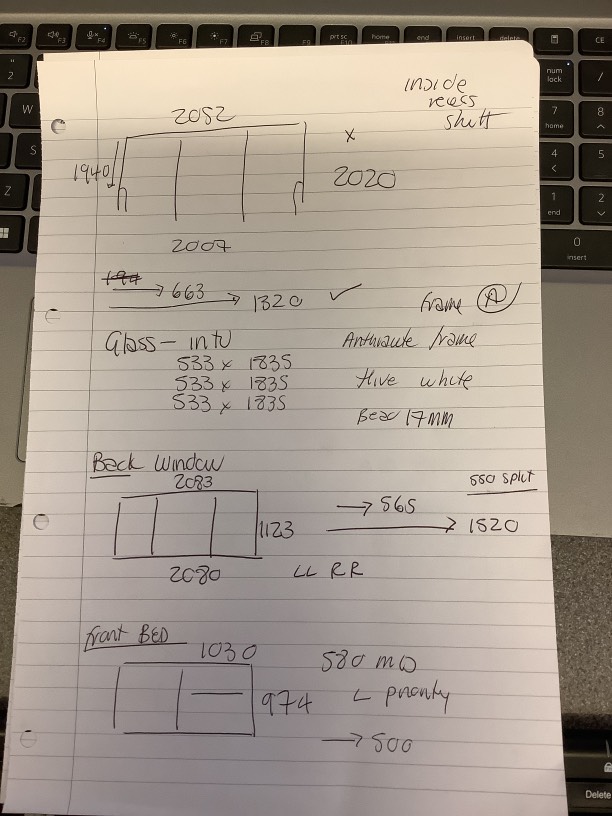 inside
recess
shutt
2052
x
1940
2020
2007
194
→ 663
→ 1320 ✓
frame Ⓐ
Glass - intu
Anthracite frame
533 x 1835
533 x 1835
533 x 1835
Hive white
Bead 17mm
Back Window
2083
550 split
→ 565
→ 1520
1123
2080
LL RR
Front BED
1030
580
974
L priority
→ 500
F2
F3
F4
F5
F6
F7
F8
prt sc
home
end
insert
delete
CE
2
W
S
Z
num
lock
/
7
home
8
4
5
1
end
2
0
insert
Delete